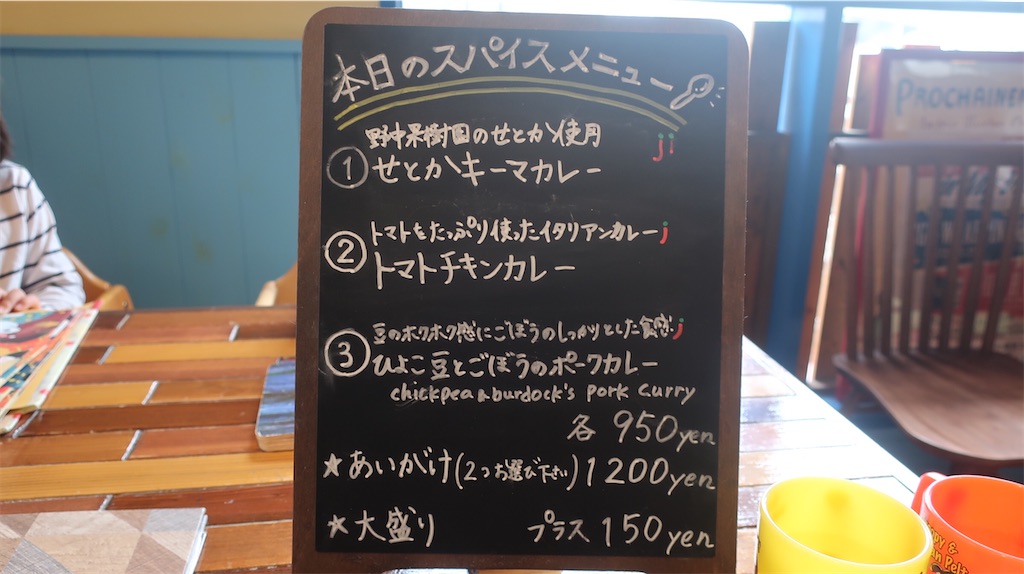 本日のスパイスメニュー
野中果樹園のせとか使用
① せとかキーマカレー
トマトをたっぷり使ったイタリアンカレー
② トマトチキンカレー
豆のホクホク感にごぼうのしっかりとした食感
③ ひよこ豆とごぼうのポークカレー
chickpea & burdock's pork curry
各 950yen
★あいがけ(2つお選び下さい) 1200yen
★大盛り プラス 150yen
PROCHAINE